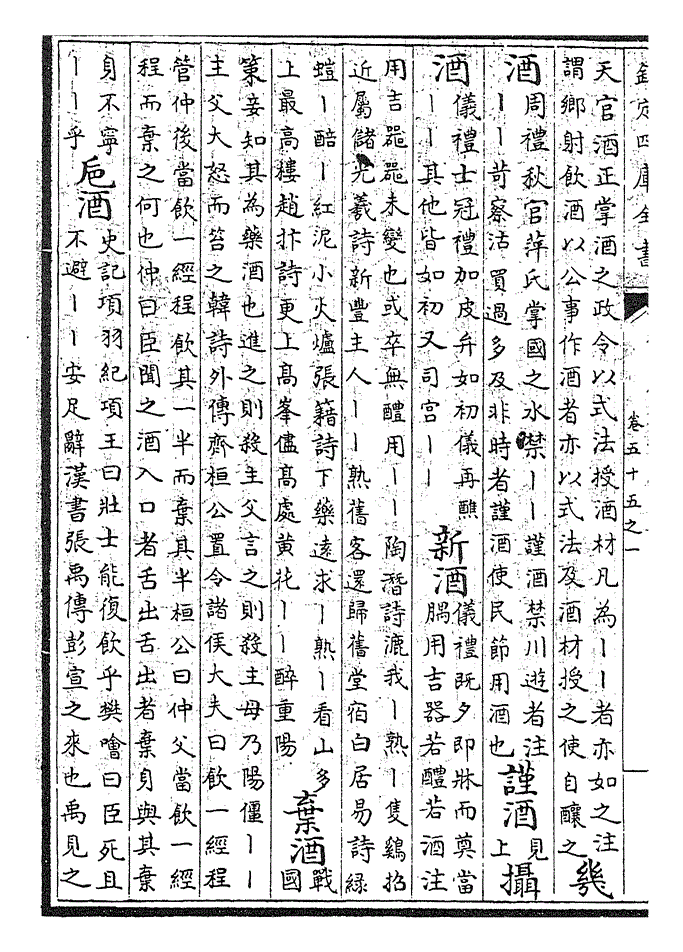 欽定四庫全書
卷五十五之一
天官酒正掌酒之政令以式法授酒材凡為丨丨者亦如之注
謂鄉射飲酒以公事作酒者亦以式法及酒材授之使自釀之
幾
酒
周禮秋官萍氏掌國之水禁丨丨謹酒禁川遊者注
丨丨苛察沽買過多及非時者謹酒使民節用酒也
謹酒
見
上
攝
酒
儀禮士冠禮加皮弁如初儀再醮
丨丨其他皆如初又司宫丨丨
新酒
儀禮既夕即牀而奠當
腢用吉器若醴若酒注
用吉噐噐未變也或卒無醴用丨丨陶潛詩漉我丨熟丨隻鷄招
近屬儲光羲詩新豐主人丨丨熟舊客還歸舊堂宿白居易詩緑
螘丨醅丨紅泥小火爐張籍詩下藥逺求丨熟丨看山多
上最高樓趙抃詩更上髙峯儘髙處黄花丨丨醉重陽
棄酒
戰
國
策妾知其為藥酒也進之則殺主父言之則殺主母乃陽僵丨丨
主父大怒而笞之韓詩外傳齊桓公置令諸侯大夫曰飲一經程
管仲後當飲一經程飲其一半而棄其半桓公曰仲父當飲一經
程而棄之何也仲曰臣聞之酒入口者舌出舌出者棄身與其棄
身不寧
丨丨乎
巵酒
史記項羽紀項王曰壯士能復飲乎樊噲曰臣死且
不避丨丨安足辭漢書張禹傳彭宣之來也禹見之